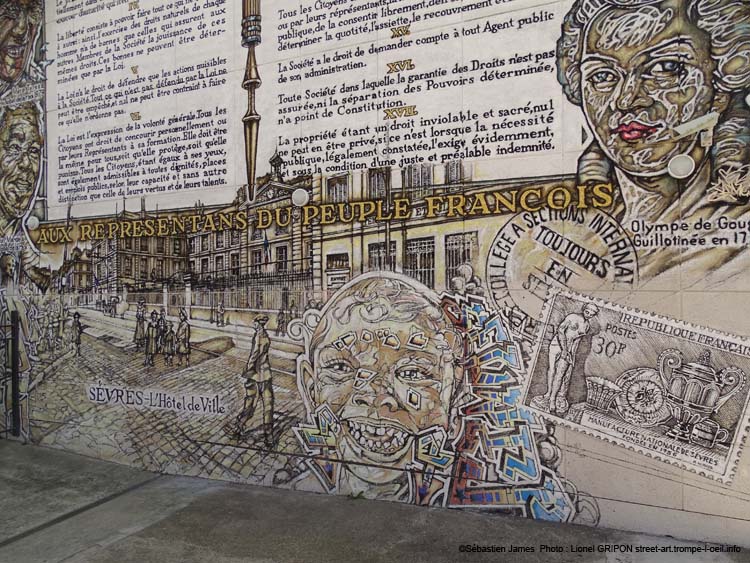 IV
La liberté consiste à pouvoir faire tout ce qui ne
à autrui: ainsi, l'exercice des droits naturels de chaque
homme n'a de bornes que celles qui assurent aux
autres Membres de la Société la jouissance de ces
mêmes droits. Ces bornes ne peuvent être déter-
minées que par la Loi.
V
La Loi n'a le droit de défendre que les actions nuisibles
à la Société. Tout ce qui n'est pas défendu par la Loi ne
peut être empêché, et nul ne peut être contraint à faire
ce qu'elle n'ordonne pas.
VI
La Loi est l'expression de la volonté générale. Tous les
Citoyens ont droit de concourir personnellement ou
par leurs Représentants à sa formation. Elle doit être
la même pour tous, soit qu'elle protège, soit qu'elle
punisse. Tous les Citoyens, étant égaux à ses yeux,
sont également admissibles à toutes dignités, places
et emplois publics, selon leur capacité et sans autre
distinction que celle de leurs vertus et de leurs talents.
Tous les Citoyens ont
ou par leurs représentants, la
publique, de la consentir librement, d'en
déterminer la quotité, l'assiette, le recouvrement et
XV
La Société a le droit de demander compte à tout Agent public
de son administration.
XVI
Toute Société dans laquelle la garantie des Droits n'est pas
assurée, ni la séparation des Pouvoirs déterminée,
n'a point de Constitution.
XVII
La propriété étant un droit inviolable et sacré, nul
ne peut en être privé, si ce n'est lorsque la nécessité
publique, légalement constatée, l'exige évidemment,
et sous la condition d'une juste et préalable indemnité.
AUX REPRESENTANS DU PEUPLE FRANCOIS
Olympe de Goug
Guillotinée en 17
COLLEGE A SECTIONS INTERNAT
TOUJOURS
EN
REPUBLIQUE FRANÇAI
POSTES
30F
MANUFACTURE NATIONALE DE SÈVRES
SÈVRES - L'Hôtel de Ville
©Sébastien James Photo : Lionel GRIPON street-art.trompe-l-oeil.info